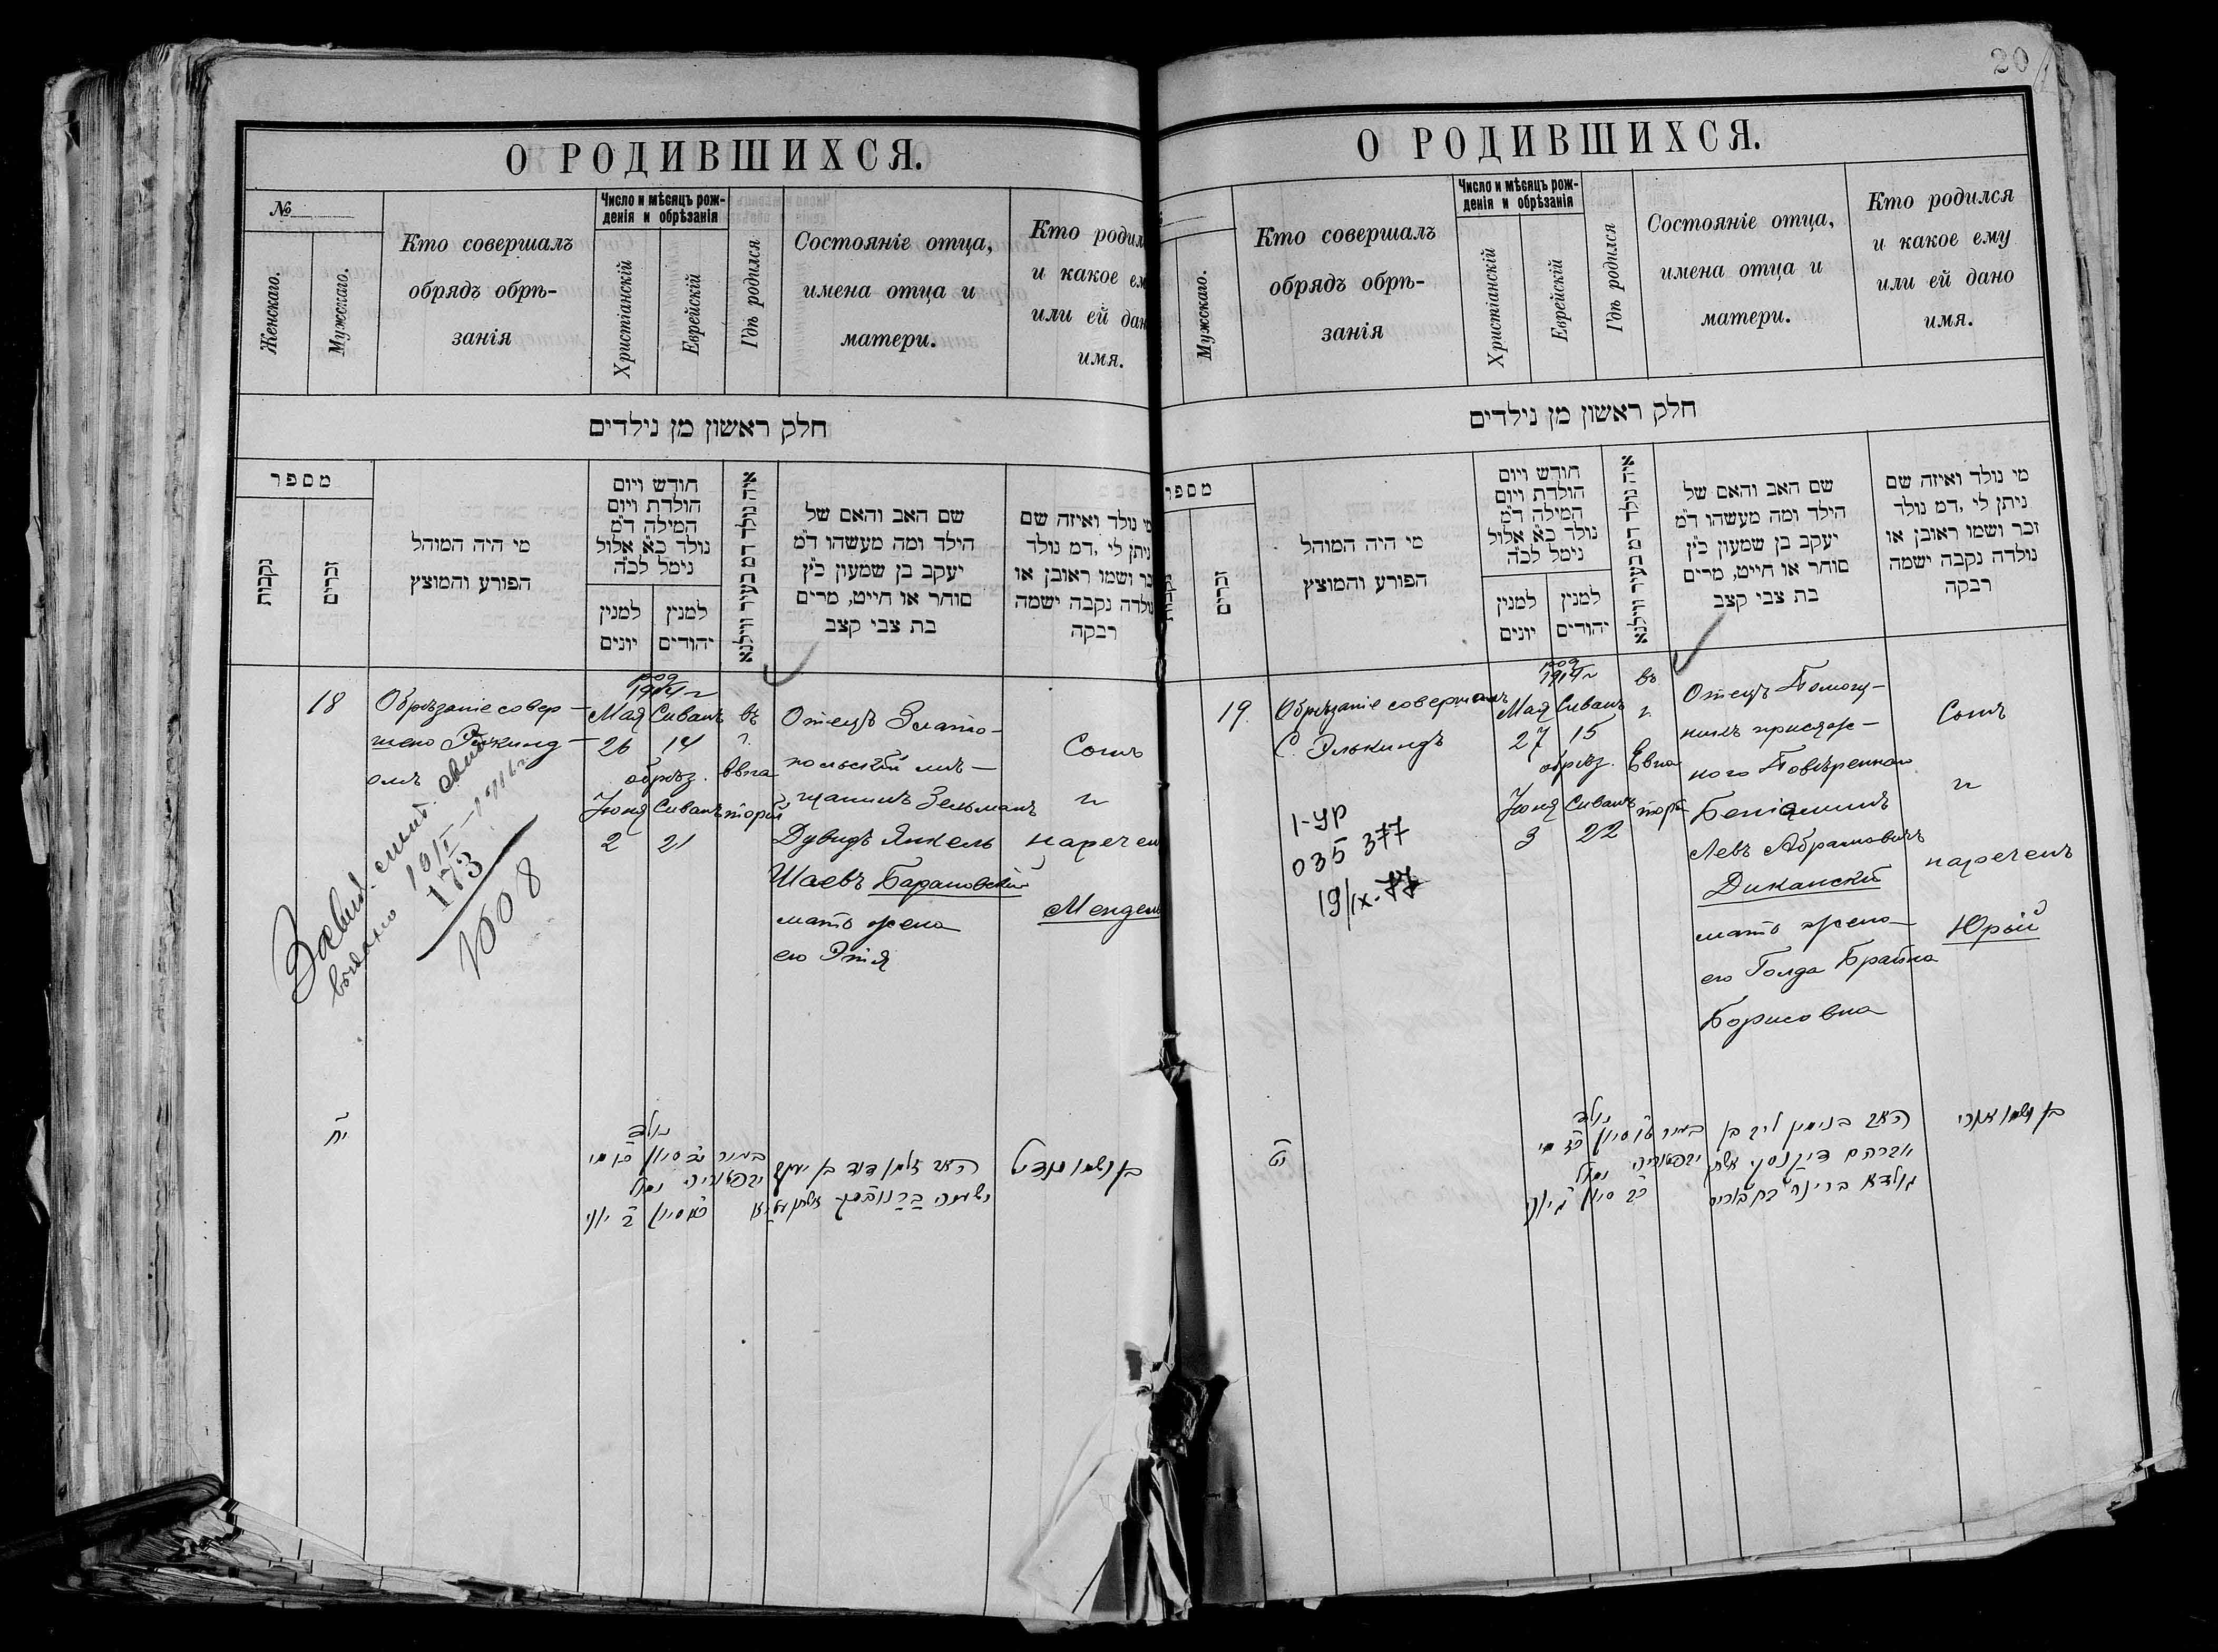 О РОДИВШИХСЯ.
№
Женскаго.
Мужскаго.
Кто совершалъ
обрядъ обрѣ-
занія
Число и мѣсяцъ рож-
денія и обрѣзанія
Христіанскій
Еврейскій
Гдѣ родился
Состояніе отца,
имена отца и
матери.
Кто родил
и какое ем
или ей дан
имя.
חלק ראשון מן נילדים
מספר
נקבות
זכרים
מי היה המוהל
הפורע והמוצץ
חודש ויום
הולדת ויום
המילה ד״מ
נולד כ״א אלול
נימל לכ״ה
למנין
יונים
למנין
יהודים
איה נולד דמ בעיר ווילנא
שם האב והאם של
הילד ומה מעשהו ד״מ
יעקב בן שמעון כ״ץ
סוחר או חייט, מרים
בת צבי קצב
מי נולד ואיזה שם
ניתן לי ,דמ נולד
זכר ושמו ראובן או
נולדה נקבה ישמה
רבקה
18
Обрѣзаніе совер-
шено
омъ
род
1914 г
Мая Сиванъ
26 14
обрѣз.
Юня Сиванъ
2 21
въ
г.
Евпа
торій
Отецъ Злато-
польскій мѣ-
щанинъ Зельманъ
Дувидъ Янкель
Шаевъ Барановскій
мать жена
его Этія
Сынъ
и
наречен
Мендель
выдано
173
1508
יח
נולד
20
О РОДИВШИХСЯ.
Мужскаго.
Кто совершалъ
обрядъ обрѣ-
занія
Число и мѣсяцъ рож-
денія и обрѣзанія
Христіанскій
Еврейскій
Гдѣ родился
Состояніе отца,
имена отца и
матери.
Кто родился
и какое ему
или ей дано
имя.
חלק ראשון מן נילדים
מספר
זכרים
מי היה המוהל
הפורע והמוצץ
חודש ויום
הולדת ויום
המילה ד״מ
נולד כ״א אלול
נימל לכ״ה
למנין
יונים
למנין
יהודים
איה נולד דמ בעיר ווילנא
שם האב והאם של
הילד ומה מעשהו ד״מ
יעקב בן שמעון כ״ץ
סוחר או חייט, מרים
בת צבי קצב
מי נולד ואיזה שם
ניתן לי ,דמ נולד
זכר ושמו ראובן או
נולדה נקבה ישמה
רבקה
19
Обрѣзаніе совершалъ
С. Элькиндъ
1-УР
035 377
19/IX-77
род
1914 г
Мая Сиванъ
27 15
обрѣз.
Юня Сиванъ
3 22
въ
г.
Евпа
тор
Отецъ Помощ-
никъ присяж-
ного Повѣреннаго
Беніаминъ
Левъ Абрамовичъ
Диканскій
мать жена
его Голда Брайна
Борисовна
Сынъ
и
нареченъ
Юрій
יט
נולד
האב בנימין ליב בן
אברהם דיקנסקי אשתו
גולדא בריינה בת בוריס